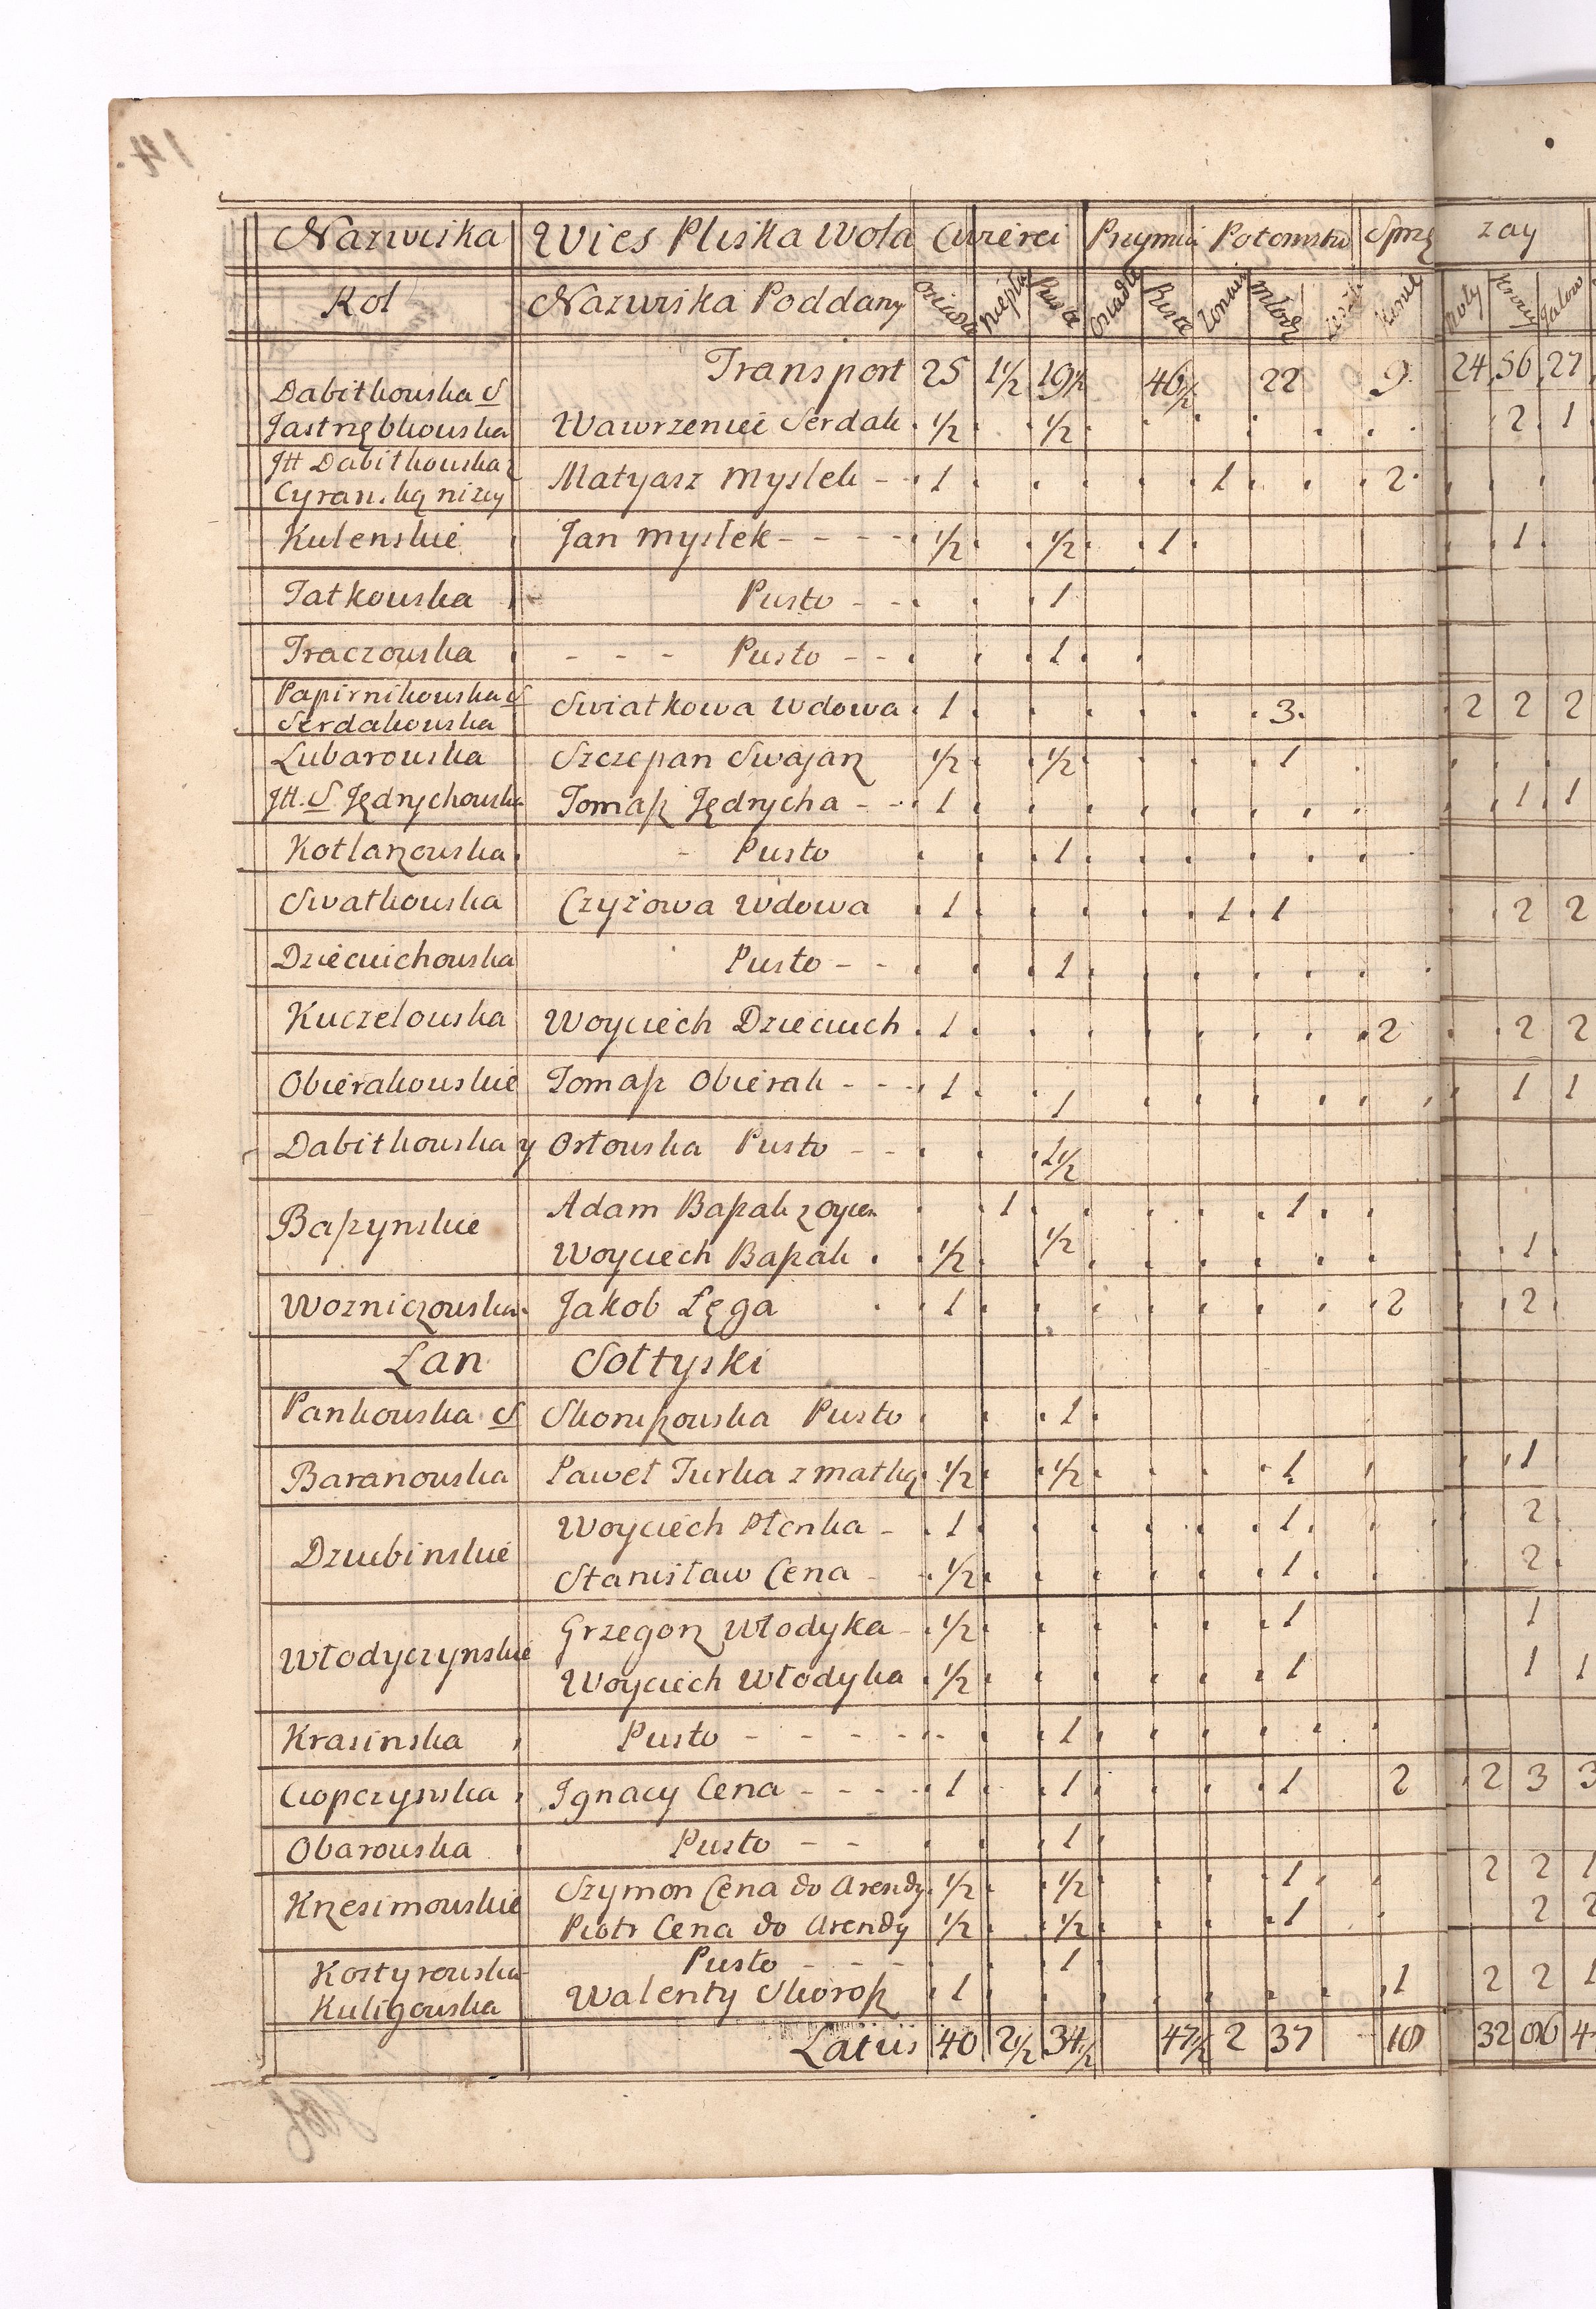 Nazwiska Wies Pliska Wola Cwierci Przymia Potomstw Sprzę zay
Rol Nazwiska Poddany Osiadła Niepła Pusta Osiadłe Puste Zonaci Młodz Konie Woły Krowy Jałow
Transport 25 1½ 19½ 46½ 22 9 24 56 27
Dabitkowska S
Jastrzębkowska Wawrzeniec Serdak ½ ½ 2 1
Jtt Dabitkowska z
Cyranską nizey Matyasz Myslek - - 1 1 2
Kulenskie Jan Myslek - - - - ½ ½ 1 1
Tatkowska Pusto - - 1
Traczowska - - - Pusto - - 1
Papirnikowska S
Serdakowska Swiatkowa Wdowa 1 3 2 2 2
Lubarowska Szczepan Swajarz ½ ½ 1
Jtt. S Jędrychowska Tomasz Jędrycha - - 1 1 1
Kotlarzowska - Pusto 1
Swatkowska Czyżowa Wdowa 1 1 1 2 2
Dzieciuchowska Pusto - - 1
Kuczelowska Woyciech Dzieciuch 1 2 2 2
Obierakowskie Tomasz Obierak - - - 1 1 1 1
Dabitkowska y Osłowska Pusto - - 1½
Baszynskie Adam Baszak z Oycem 1 1
Woyciech Baszak ½ ½ 1
Wozniczowska Jakob Lęga 1 2 2
Łan Sołtyski
Pankowska S Skorupowska Pusto 1
Baranowska Paweł Turka z matką ½ ½ 1 1
Dziubinskie Woyciech Płonka - 1 1 2
Stanisław Cena - - ½ 1 2
Włodyczynskie Grzegorz Włodyka - ½ 1 1
Woyciech Włodyka ½ 1 1 1
Krasinska Pusto - - - - - 1
Ciopczynska Ignacy Cena - - - - 1 1 1 2 2 3 3
Obarowska Pusto - - 1
Krzesimowskie Szymon Cena do Arendy ½ ½ 1 2 2 1
Piotr Cena do Arendy ½ ½ 1 2 2
Kostyrowska Pusto - - - 1
Kuligowska Walenty Skorosz 1 1 2 2 1
Latus 40 2½ 34½ 47½ 2 37 18 32